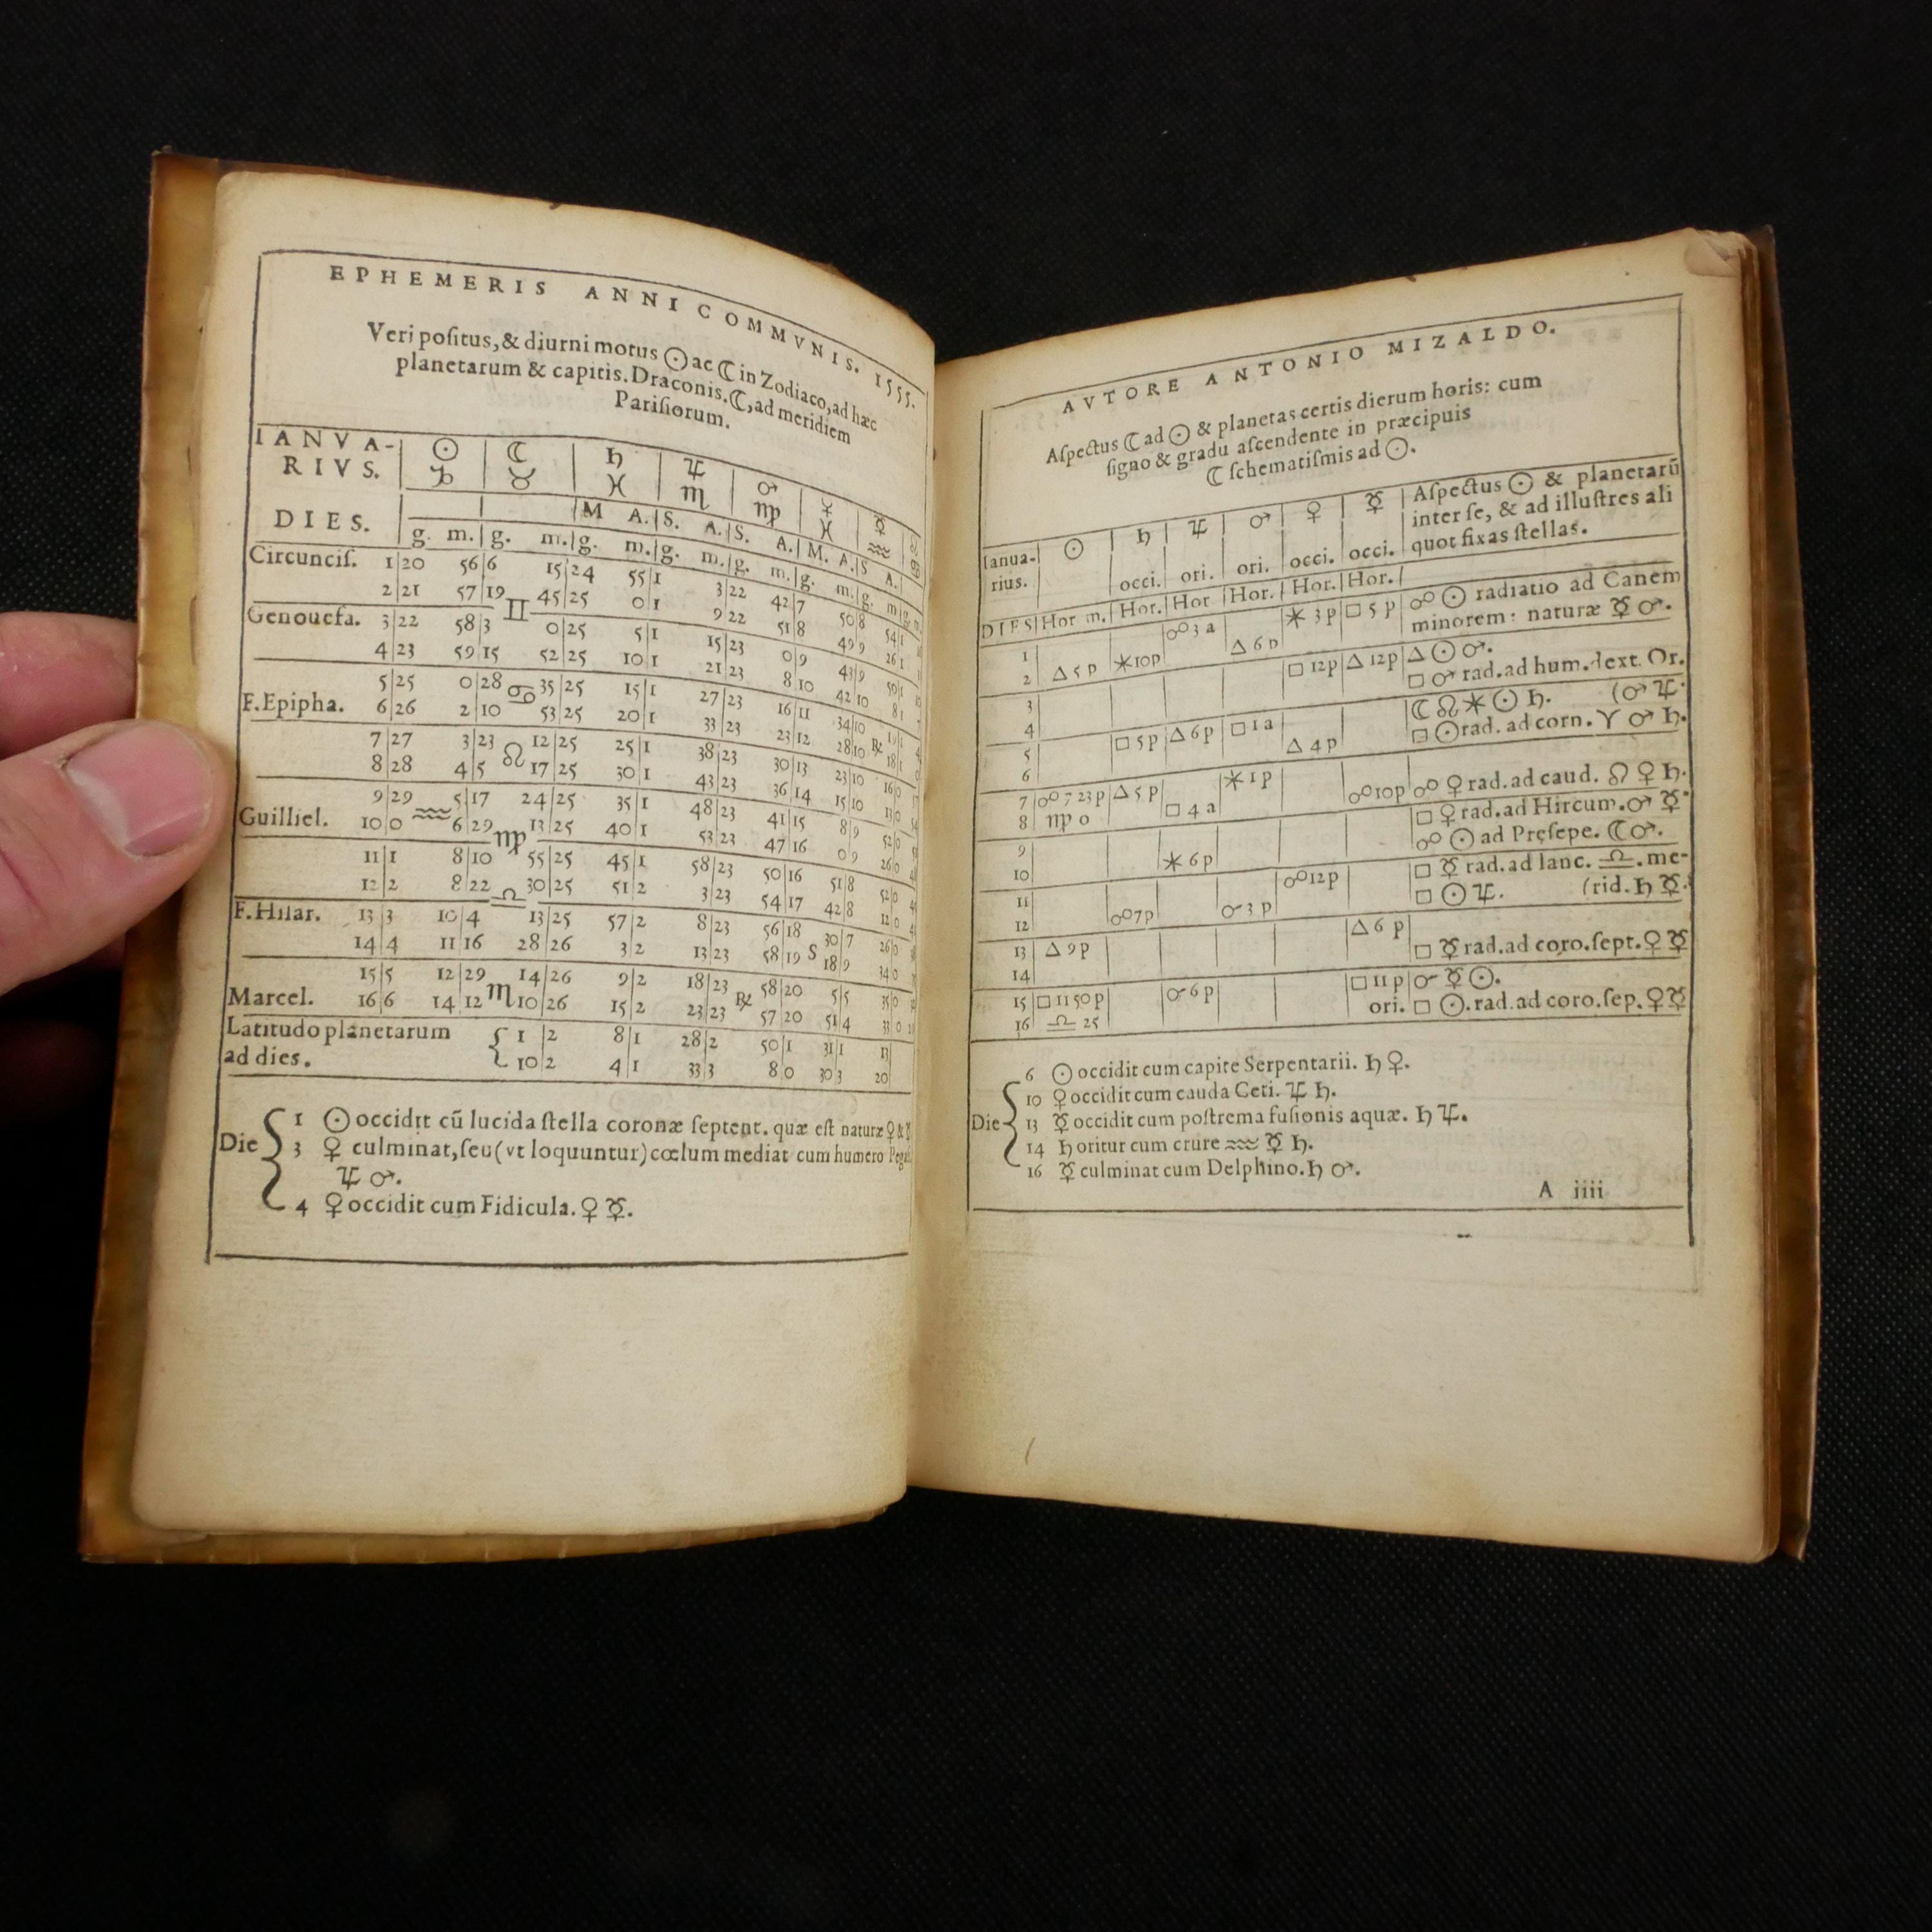 EPHEMERIS ANNI COMMVNIS. 1555.
Veri poſitus, & diurni motus ☉ ac ☾ in Zodiaco, ad hæc
planetarum & capitis. Draconis. ☾, ad meridiem
Pariſiorum.
IANVA-
RIVS.
☉ ☾ ♄ ♃ ♂ ♀ ☿
♑ ♉ ♓ ♏ ♍ ♓ ♒
M A. S. A. S. A. M. A. S A.
DIES.
g. m. g. m. g. m. g. m. g. m. g. m. g. m. g. m.
Circunciſ. 1 20 56 6 15 24 55 1 3 22 42 7 50 8 54 1
2 21 57 19 ♊ 45 25 0 1 9 22 51 8 49 9 26 1
Genouefa. 3 22 58 3 0 25 5 1 15 23 0 9 43 9 50 1
4 23 59 15 52 25 10 1 21 23 8 10 42 10 8 1
5 25 0 28 ♋ 35 25 15 1 27 23 16 11 34 10 19 1
F.Epipha. 6 26 2 10 53 25 20 1 33 23 23 12 28 10 ℞ 18 1
7 27 3 23 ♌ 12 25 25 1 38 23 30 13 23 10 16 0
8 28 4 5 17 25 30 1 43 23 36 14 15 10 13 0
9 29 5 17 24 25 35 1 48 23 41 15 8 9 52 0
Guilliel. 10 0 ♒ 6 29 ♍ 13 25 40 1 53 23 47 16 0 9 26 0
11 1 8 10 55 25 45 1 58 23 50 16 51 8 52 0
12 2 8 22 ♎ 30 25 51 2 3 23 54 17 42 8 12 0
F.Hilar. 13 3 10 4 13 25 57 2 8 23 56 18 30 7 26 0
14 4 11 16 28 26 3 2 13 23 58 19 S 18 9 34 0
15 5 12 29 14 26 9 2 18 23 58 20 5 5 35 0
Marcel. 16 6 14 12 ♏ 10 26 15 2 23 23 ℞ 57 20 51 4 33 0
Latitudo planetarum 1 2 8 1 28 2 50 1 31 1 13
ad dies. 10 2 4 1 33 3 8 0 30 3 20
Die
1 ☉ occidit cū lucida ſtella coronæ ſeptent. quæ eſt naturæ ♀ & ☿
3 ♀ culminat, ſeu (vt loquuntur) cœlum mediat cum humero
♃ ♂.
4 ♀ occidit cum Fidicula. ♀ ☿.
AVTORE ANTONIO MIZALDO.
Aſpectus ☾ ad ☉ & planetas certis dierum horis: cum
ſigno & gradu aſcendente in præcipuis
☾ ſchematiſmis ad ☉.
Ianua-
rius.
☉ ♄ ♃ ♂ ♀ ☿
occi. ori. ori. occi. occi.
Aſpectus ☉ & planetarū
inter ſe, & ad illuſtres ali
quot fixas ſtellas.
DIES Hor m. Hor. Hor Hor. Hor. Hor.
1 ☍ 3 a ⚹ 3 p □ 5 p ☍ ☉ radiatio ad Canem
2 △ 5 p ⚹ 10p △ 6 p minorem: naturæ ☿ ♂.
3 □ 12p △ 12p △ ☉ ♂.
4 □ ♂ rad. ad hum. dext. Or.
5 □ 5 p △ 6 p □ 1 a ☾ ☊ ⚹ ☉ ♄. (♂ ♃.
6 △ 4 p □ ☉ rad. ad corn. ♈ ♂ ♄.
7 ☍ 7 23p △ 5 p ⚹ 1 p ☍ 10p ☍ ♀ rad. ad caud. ♌ ♀ ♄.
8 ♍ 0 □ 4 a □ ♀ rad. ad Hircum. ♂ ☿.
9 ☍ ☉ ad Pręſepe. ☾ ♂.
10 ⚹ 6 p □ ☿ rad. ad lanc. ♎. me-
11 ☍ 12p □ ☉ ♃. (rid. ♄ ☿.
12 ☍ 7p ☌ 3 p
13 △ 9 p △ 6 p
14 □ ☿ rad. ad coro. ſept. ♀ ☿
15 □ 11 50 p ☌ 6 p □ 11 p ☌ ☿ ☉.
16 ♎ 25 ori. □ ☉. rad. ad coro. ſep. ♀ ☿
Die
6 ☉ occidit cum capite Serpentarii. ♄ ♀.
10 ♀ occidit cum cauda Ceti. ♃ ♄.
13 ☿ occidit cum poſtrema fuſionis aquæ. ♄ ♃.
14 ♄ oritur cum crure ♒ ☿ ♄.
16 ☿ culminat cum Delphino. ♄ ♂.
A iiii